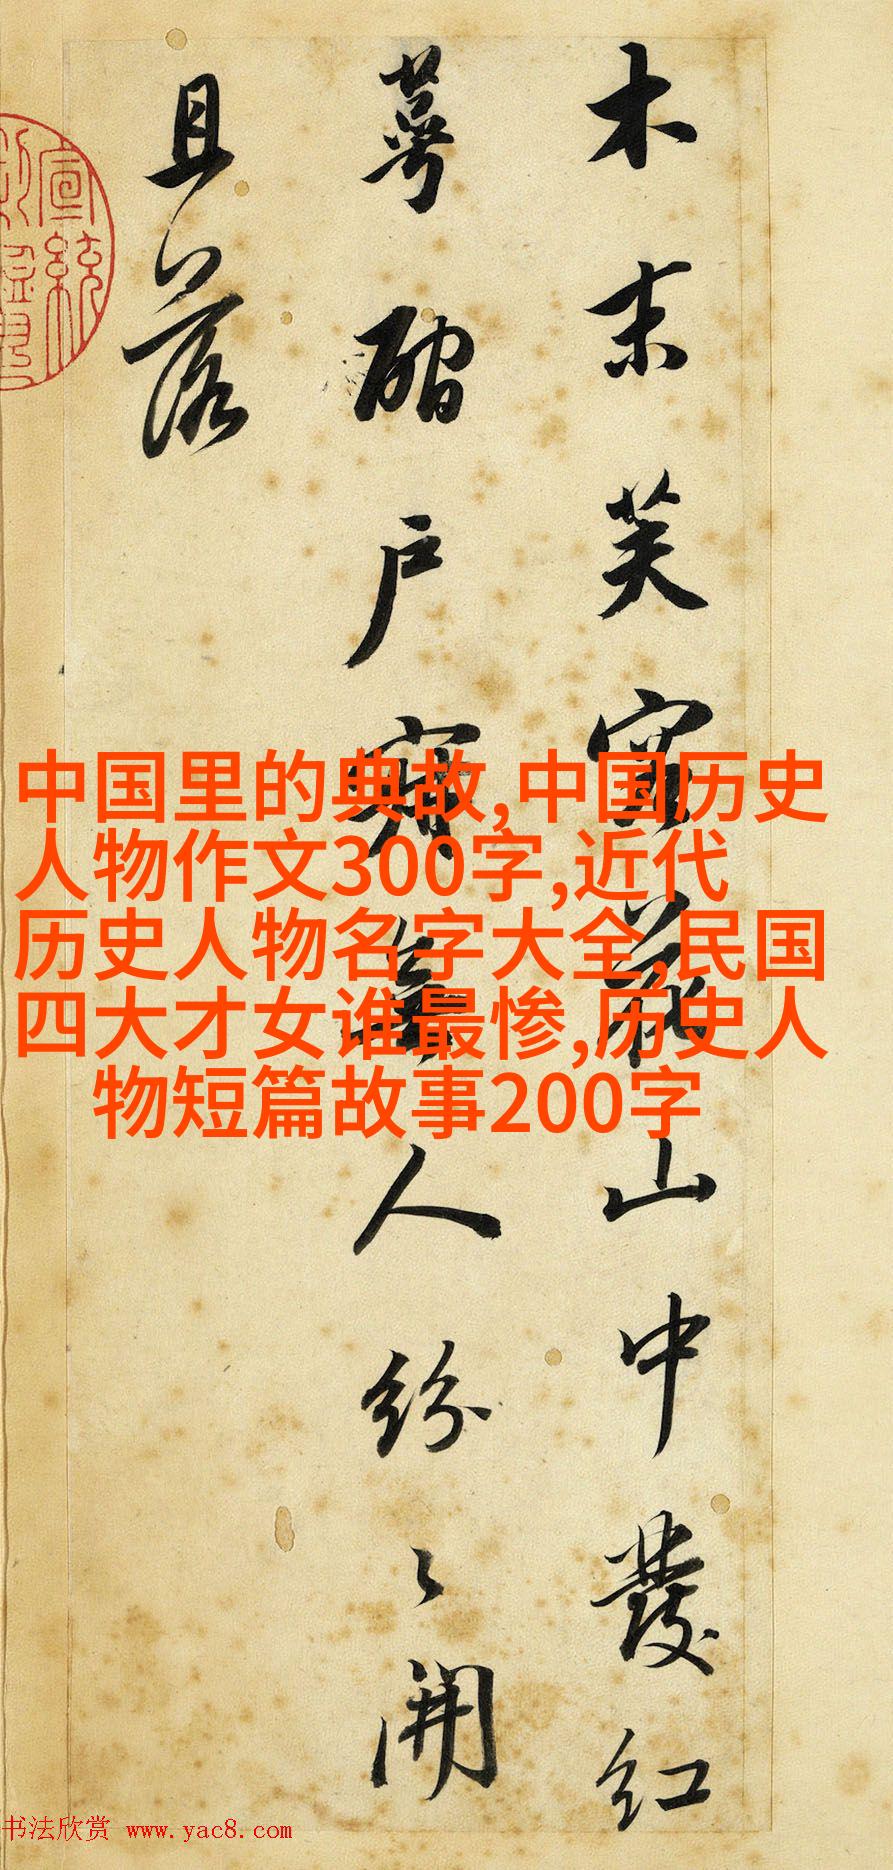 木末芙蓉花山中發紅
萼磵戶寂無人紛々開
且落
宣統
中国里的典故,中国历史
人物作文300字,近代
历史人物名字大全,民国
四大才女谁最惨,历史人
物短篇故事200字
书法欣赏 www.yac8.com